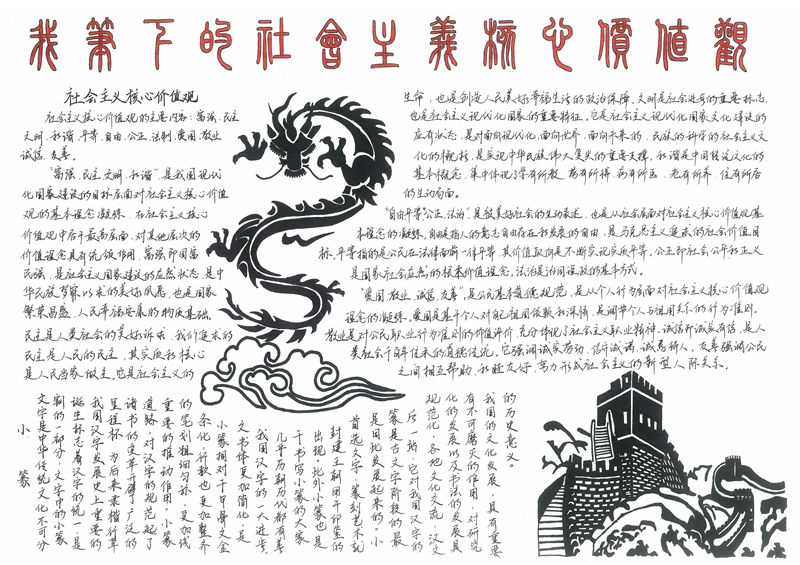 我笔下的社會主義核心價值觀
社会主义核心价值观
社会主义核心价值观的主要内容:富强、民主
文明、和谐、平等、自由、公正、法制、爱国、敬业
诚信、友善。
"富强、民主、文明、和谐",是我国现代
化国家建设的目标层面对社会主义核心价值
观的基本理念凝练。在社会主义核心
价值观中居于最高层面,对其他层次的
价值理念具有统领作用。富强即国富
民强,是社会主义国家建设的应然状态,是中
华民族梦寐以求的美好夙愿,也是国家
繁荣昌盛,人民幸福安康的物质基础。
民主是人类社会的美好诉求,我们追求的
民主是人民的民主,其实质和核心
是人民当家做主。它是社会主义的
生命,也是创造人民美好幸福生活的政治保障。文明是社会进步的重要标志,
也是社会主义现代化国家的重要特征。它是社会主义现代化国家文化建设的
应有状态,是对面向现代化,面向世界,面向未来的,民族的科学的社会主义文
化的概括,是实现中华民族伟大复兴的重要支撑。和谐是中国传统文化的
基本概念,集中体现了学有所教,劳有所得,病有所医,老有所养,住有所居
的生动局面。
"自由平等,公正,法治",是最美好社会的生动表述,也是从社会层面对社会主义核心价值观基
本理念的凝练。自由是指人的意志自由存在和发展的自由,是马克思主义追求的社会价值目
标。平等指的是公民在法律面前一律平等,其价值取向是不断实现实质平等。公正即社会公平和正义
是国家社会应然的根本价值理念。法治是治国理政的基本方式。
"爱国、敬业、诚信、友善",是公民基本道德规范,是从个人行为层面对社会主义核心价值观
理念的凝练。爱国是基于个人对自己祖国依赖和深情,是调节个人与祖国关系的行为准则。
敬业是对公民职业行为准则的价值评价,充分体现了社会主义职业精神。诚信即诚实有信,是人
类社会千百年传承的道德传统。它强调诚实劳动,信守诚诺,诚恳待人。友善强调公民
之间相互帮助,和睦友好,努力形成社会主义的新型人际关系。
小篆
文字是中华传统文化不可分
割的一部分,文字中的小篆
诞生标志着汉字的统一,是
我国汉字发展史上重要的
里程杯,为后来隶楷行草
诸书的变革开辟了广泛的
道路,对汉字的规范起了
重要的推动作用。小篆
的笔划粗细匀称,更加线
条化,行款也更加整齐
小篆相对于甲骨文金
文书体更加简化,是
我国汉字的一大进步。
几乎历朝历代都有善
于书写小篆的大家
出现。此外小篆也是
封建王朝用于印玺的
首选文字,篆刻艺术就
是因此发展起来的,小
篆是古文字阶段的最
后一站,它对我国汉字
规范化,各地文化交流,汉文
化的发展以及书法的发展具
有不可磨灭的作用,对研究
我国的文化发展,具有重要
的历史意义。